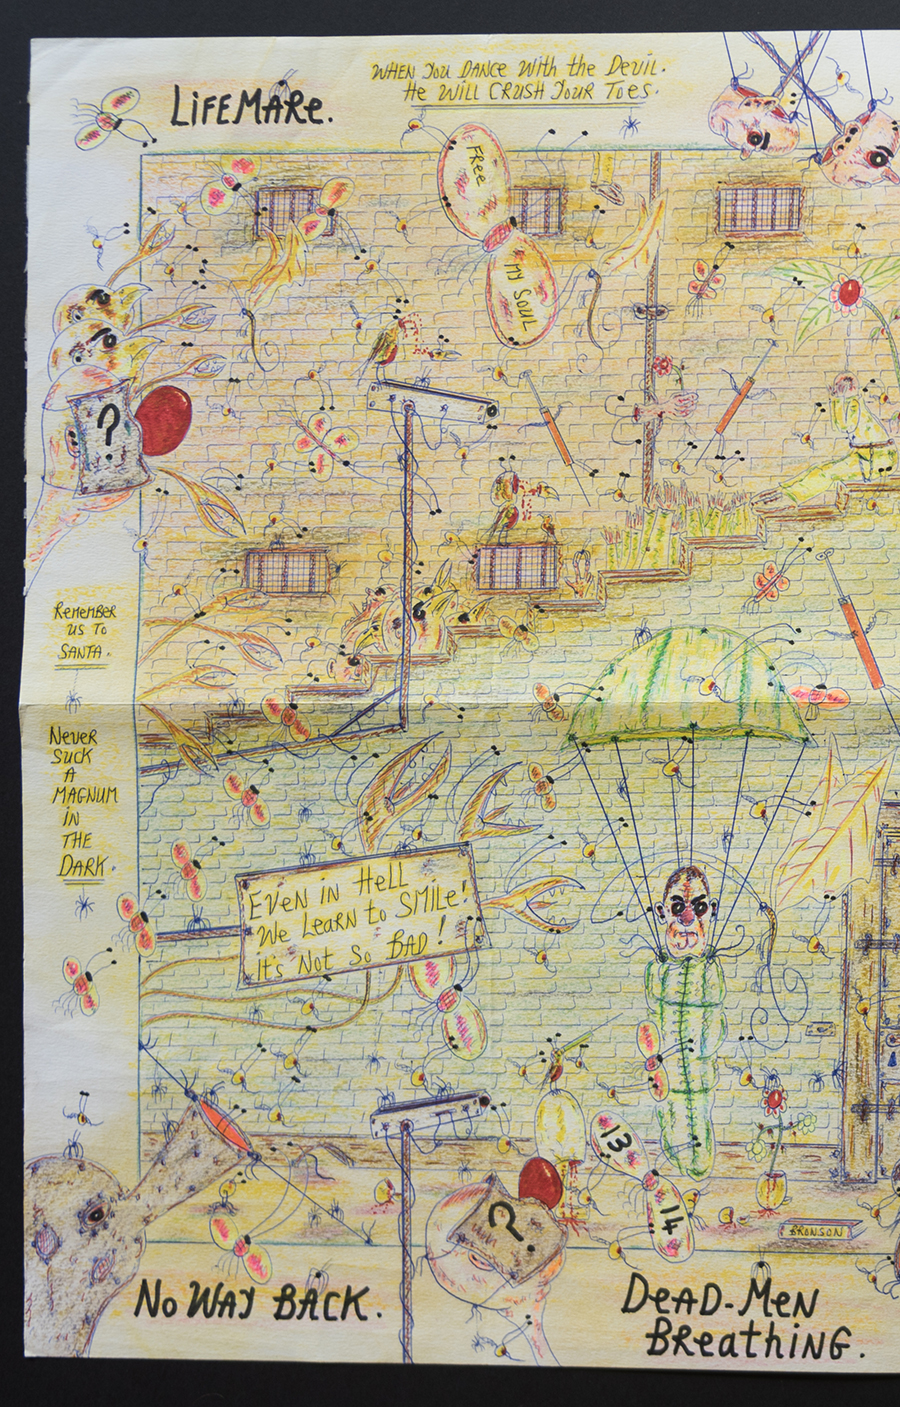 LiFEMARe.
WHEN YOU DANCE WITH the DEViL.
HE WiLL CRUSH YOUR TOES.
FREE
MY SOUL
?
REMEMBER
US TO
SANTA.
NEVER
SUCK
A
MAGNUM
iN
THE
DARK.
EVEN iN HELL
WE LEARN to SMiLE!
iT'S NOT SO BAD!
13.
14
?
BRONSON
No WAY BACK.
DeAD-MeN
BReathiNG.